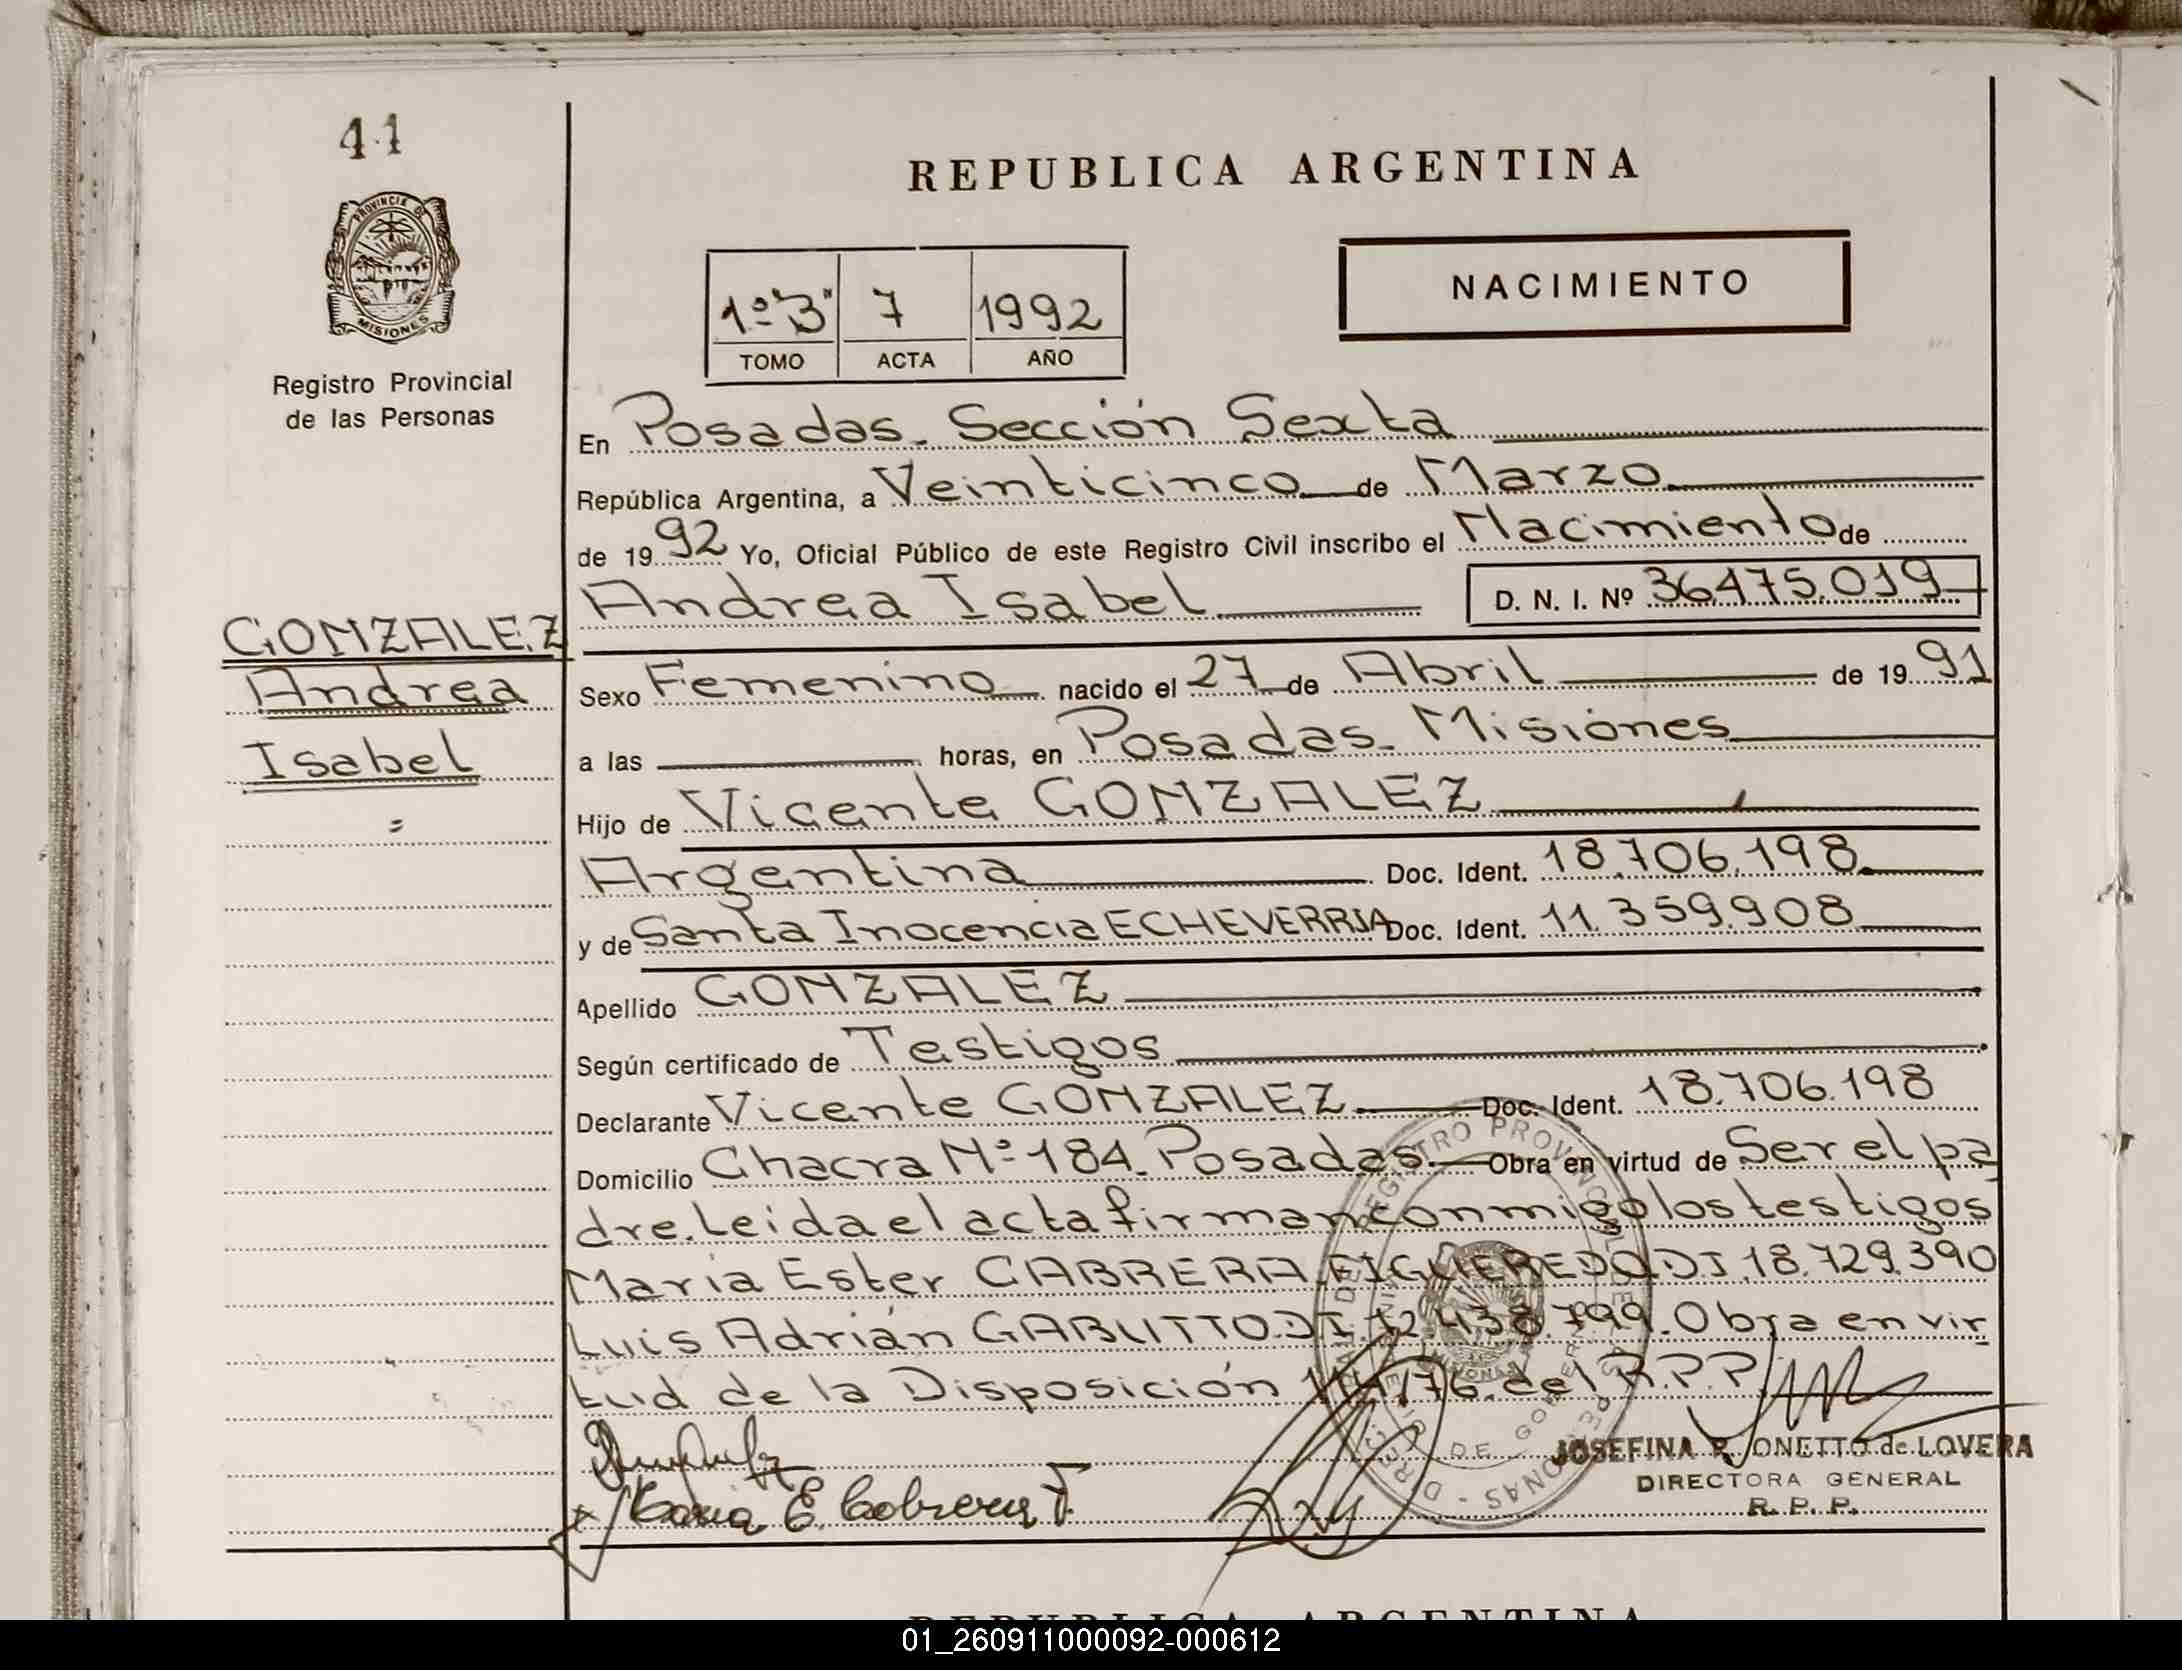 41
REPUBLICA ARGENTINA
PROVINCIA DE
MISIONES
Registro Provincial
de las Personas
NACIMIENTO
1º "3" 7 1992
TOMO ACTA AÑO
En Posadas. Sección Sexta
República Argentina, a Veinticinco de Marzo
de 1992 Yo, Oficial Público de este Registro Civil inscribo el Nacimiento de
Andrea Isabel D. N. I. Nº 36.475.019
GONZALEZ
Andrea
Isabel
=
Sexo Femenino nacido el 27 de Abril de 1991
a las horas, en Posadas. Misiones
Hijo de Vicente GONZALEZ
Argentina Doc. Ident. 18.706.198
y de Santa Inocencia ECHEVERRIA Doc. Ident. 11.359.908
Apellido GONZALEZ
Según certificado de Testigos
Declarante Vicente GONZALEZ Doc. Ident. 18.706.198
Domicilio Chacra Nº 184. Posadas. Obra en virtud de Ser el pa
dre. Leida el acta firman conmigo los testigos
María Ester CABRERA FIGUEREDO D.I. 18.729.390
Luis Adrián GABUTTO. D.I. 12.438.799. Obra en vir
tud de la Disposición /76. del R.P.P
María E. Cabrera F.
JOSEFINA R. ONETTO de LOVERA
DIRECTORA GENERAL
R. P. P.
REPUBLICA ARGENTINA
01_260911000092-000612